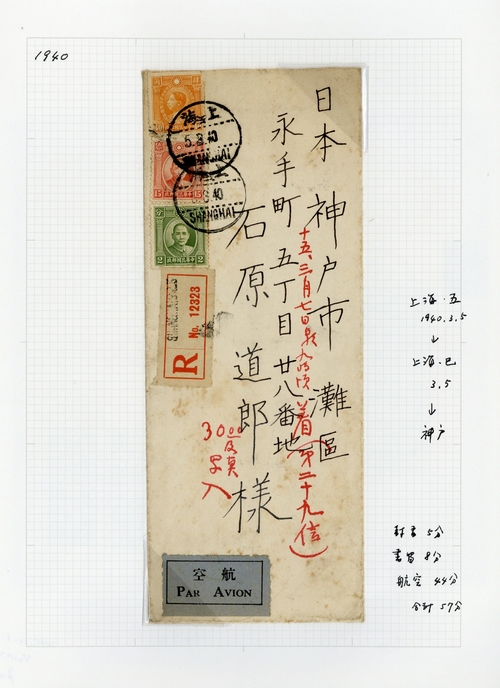 1940
日本 神戸市 灘區
永手町 五丁目 廿八番地
石原 道郎 様
十五、三月七日
着(第二十九信)
30
入
上海
5.3.40
SHANGHAI
40
SHANGHAI
2
2
R
No. 12323
空航
PAR AVION
上海.五
1940.3.5
↓
上海.巳
3.5
↓
神戸
封書 5分
書留 8分
航空 44分
合計 57分